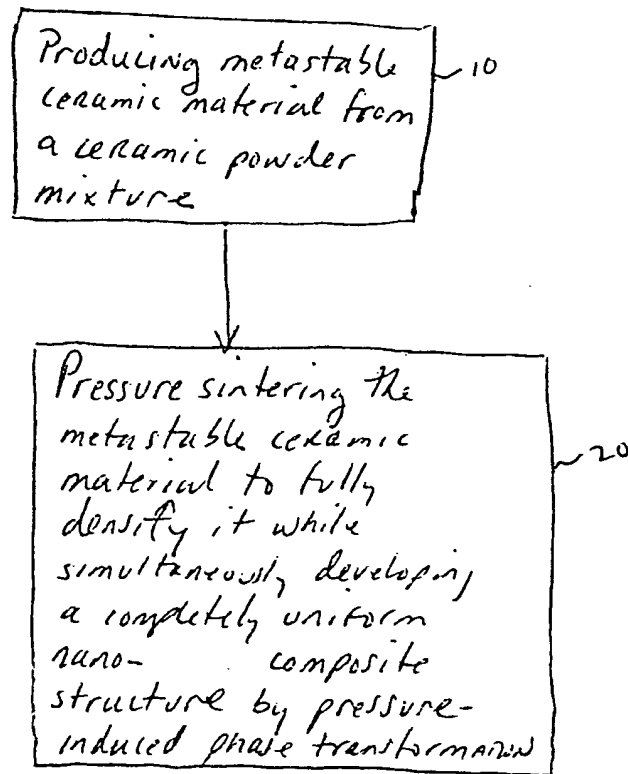 Producing metastable
ceramic material from
a ceramic powder
mixture
10
Pressure sintering the
metastable ceramic
material to fully
densify it while
simultaneously developing
a completely uniform
nano- composite
structure by pressure-
induced phase transformation
20